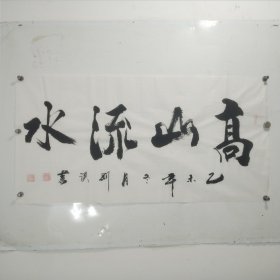 高山流水
乙未年冬月刘
书